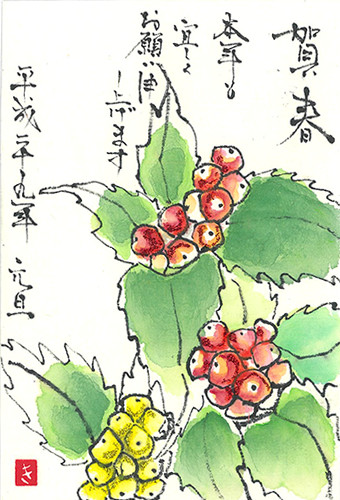 賀春
本年も
宜しく
お願い申
し上げます
平成二十九年 元旦
き